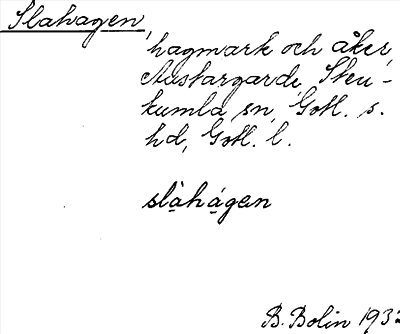 Slahagen,
hagmark och åker,
Austargarde, Sten-
kumla sn, Gotl. s.
hd, Gotl. l.
slàhágen
B. Bolin 1932